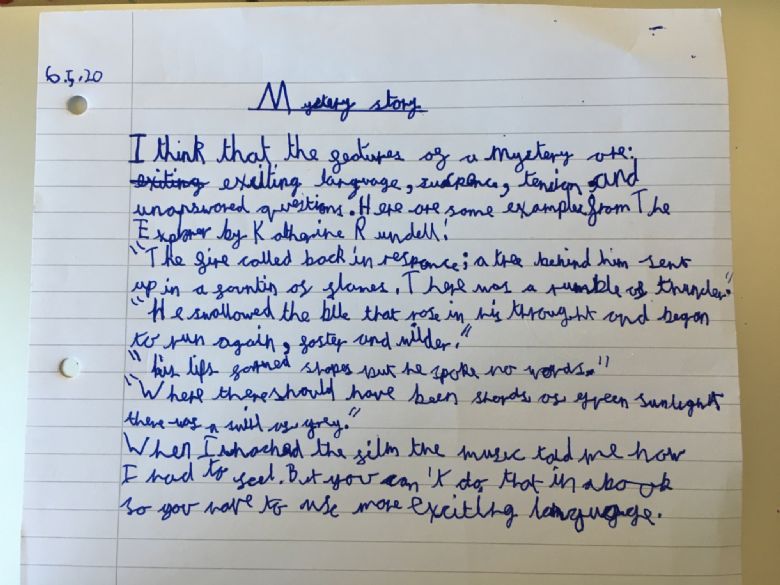 6.5.20
Mystery story
I think that the features of a mystery are:
exiting exciting language, suspence, tension, and
unanswored questions. Here are some examples from The
Explorer by Katherine Rundell:
"The fire called back in responce; a tree behind him sent
up in a fountin of flames. There was a rumble of thunder."
"He swallowed the bile that rose in his throught and began
to run again, faster and wilder."
"his lips formed shapes but he spoke no words."
"Where there should have been shords of green sunlight
there was a wall of grey."
When I whached the film the music told me how
I had to feel. But you can't do that in a book
so you have to use more exciting language.